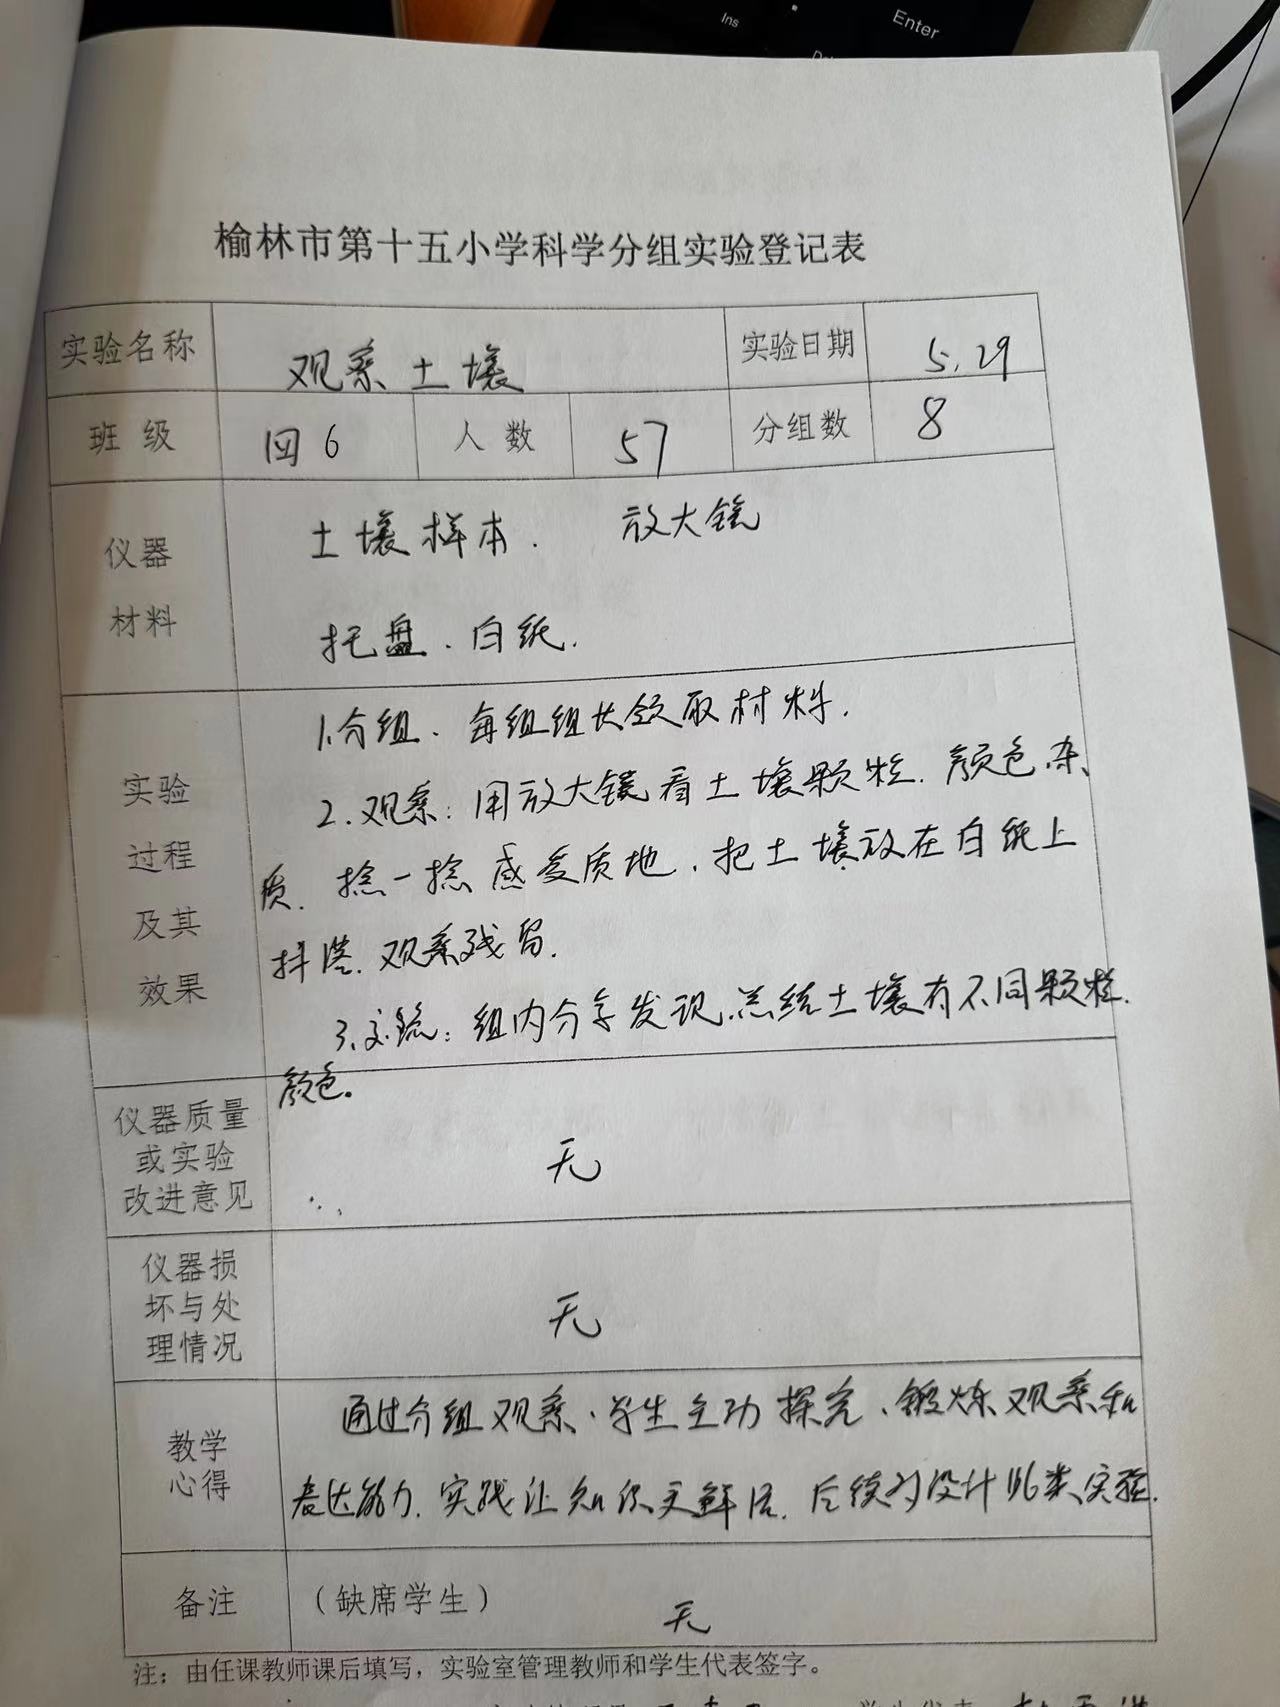 Ins
Enter
榆林市第十五小学科学分组实验登记表
实验名称 观察土壤 实验日期 5.29
班级 四6 人数 57 分组数 8
仪器
材料
土壤样本. 放大镜
托盘、白纸.
实验
过程
及其
效果
1.分组、每组组长领取材料.
2.观察:用放大镜看土壤颗粒、颜色、杂
质、捻一捻感受质地、把土壤放在白纸上
抖落、观察残留.
3.交流:组内分享发现.总结土壤有不同颗粒、
颜色。
仪器质量
或实验
改进意见
无
仪器损
坏与处
理情况
无
教学
心得
通过分组观察、学生主动探究、锻炼观察和
表达能力.实践让知识更鲜活.后续多设计此类实验.
备注 (缺席学生) 无
注:由任课教师课后填写,实验室管理教师和学生代表签字。